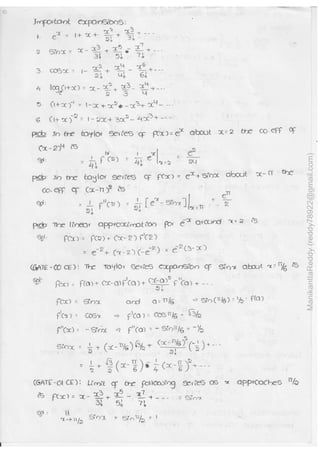 Important expansions:
1. e^x = 1 + x + x^2/2! + x^3/3! + - - -
2. Sinx = x - x^3/3! + x^5/5! - x^7/7! + - - -
3. cosx = 1 - x^2/2! + x^4/4! - x^6/6! + - - -
4. log(1+x) = x - x^2/2 + x^3/3 - x^4/4 + - - -
5. (1+x)^-1 = 1 - x + x^2 - x^3 + x^4 - - -
6. (1+x)^-2 = 1 - 2x + 3x^2 - 4x^3 + - - -
Pb) In the taylor series of f(x) = e^x about x=2 the co eff of
(x-2)^4 is
sol: = 1/4! f(2) = 1/4! e^x |x=2 = e^2/24
Pb) In the taylor series of f(x) = e^x + sinx about x=π the
co.eff of (x-π)^2 is
sol: = 1/2! f''(π) = 1/2! [e^x - sinx] x=π = e^π/2
Pb) The linear approximation for e^-x around x=2 is
sol: f(x) = f(2) + (x-2) f'(2)
= e^-2 + (x-2)(-e^-2) = e^-2 (3-x)
(GATE- CE): The Taylor series expansion of sinx about x=π/6 is
sol: f(x) = f(a) + (x-a) f'(a) + (x-a)^2/2! f''(a) + - - -
f(x) = sinx and a = π/6 ⇒ sin(π/6) = 1/2 = f(a)
f'(x) = cosx ⇒ f'(a) = cos π/6 = √3/2
f''(x) = -sinx ⇒ f''(a) = -sin π/6 = -1/2
sinx = 1/2 + (x-π/6) √3/2 + (x-π/6)^2/2! (-1/2) + - - -
= 1/2 + √3/2 (x-π/6) - 1/4 (x-π/6)^2 + - - -
(GATE-01 CE): Limit of the following series as x approaches π/2
is f(x) = x - x^3/3! + x^5/5! - x^7/7! + - - - = sinx
sol: lt x→π/2 sinx = sin π/2 = 1
ManikantaReddy (reddy78922@gmail.com)